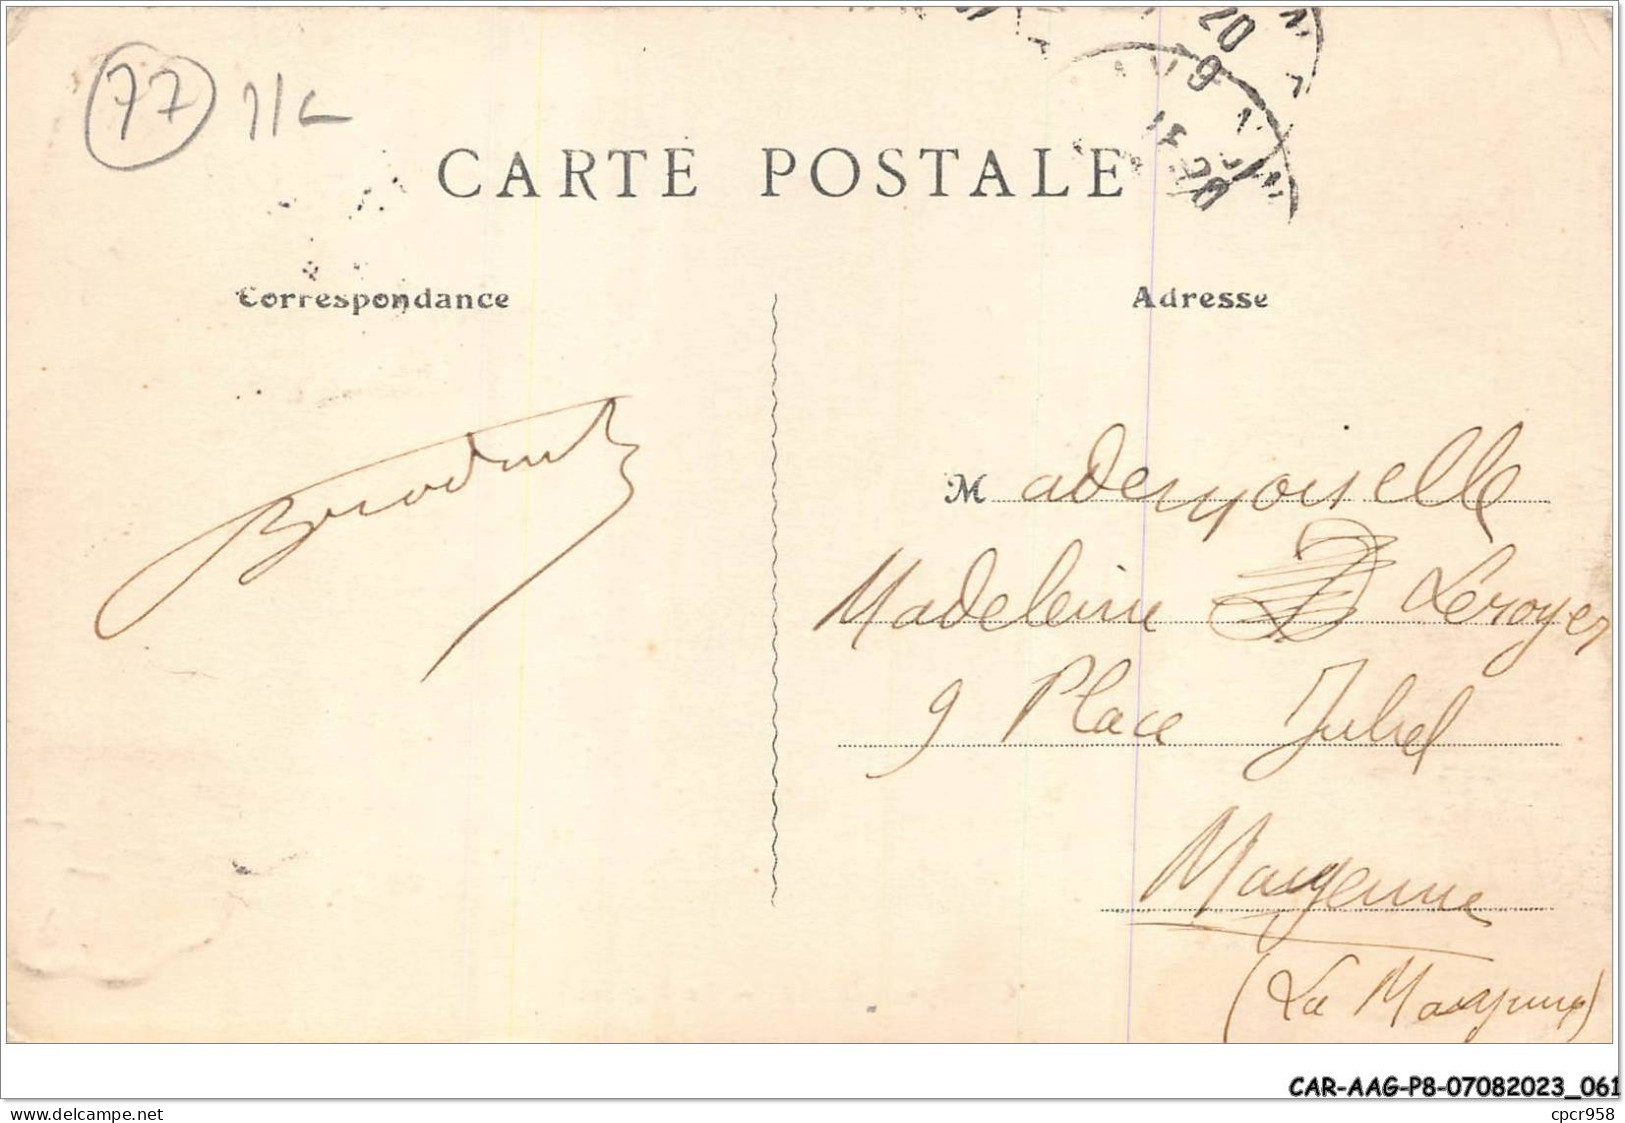 77
CARTE POSTALE
Correspondance
Adresse
Mademoiselle
Madeleine Leroyer
9 Place Juhel
Mayenne
(La Mayenne)
CAR-AAG-P8-07082023_061
cpcr958